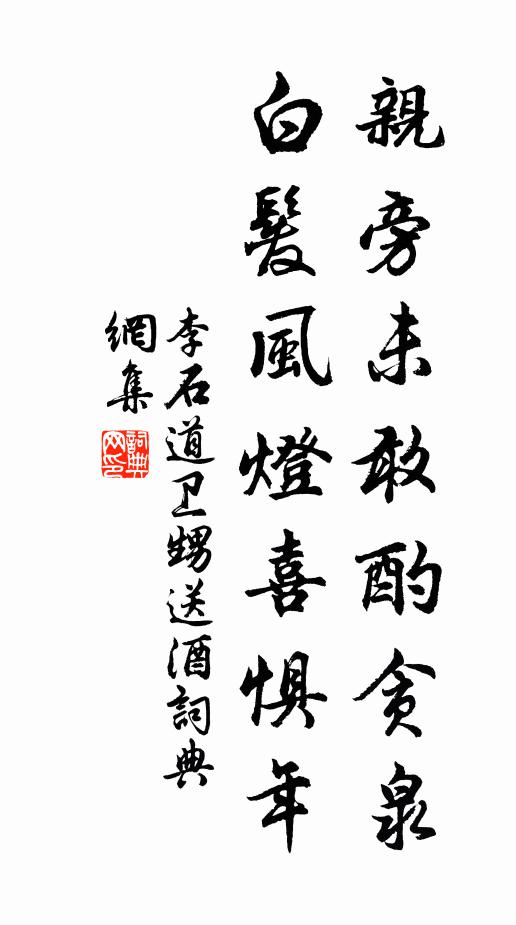 親旁未敢酌貪泉
白髮風燈喜懼年
李石道卫甥送酒詞典
網集
詞典
网印